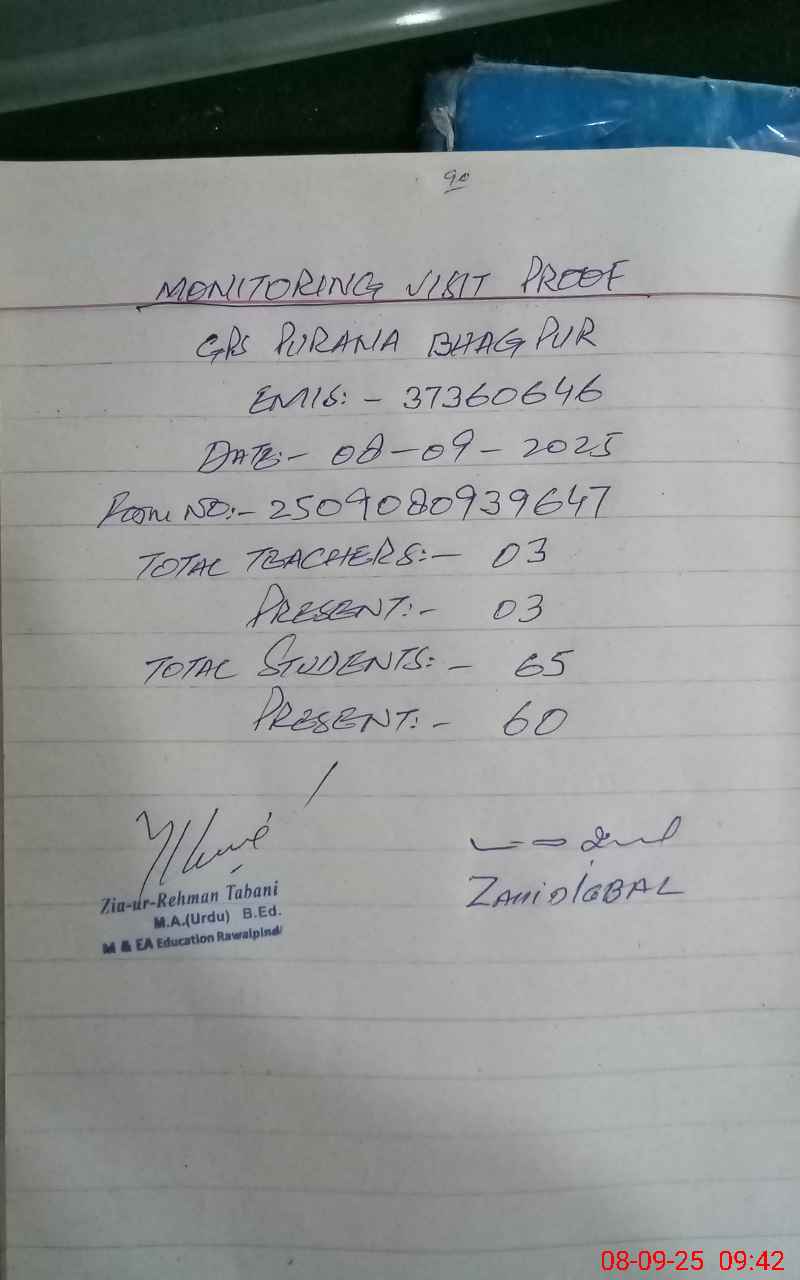 90
MONITORING VISIT PROOF
GPS PURANA BHAGPUR
EMIS:- 37360646
DATE:- 08-09-2025
Form NO:- 2509080939647
TOTAL TEACHERS:- 03
PRESENT:- 03
TOTAL STUDENTS:- 65
PRESENT:- 60
Zia-ur-Rehman Tabani
M.A.(Urdu) B.Ed.
M & EA Education Rawalpindi
ZAHID IQBAL
08-09-25 09:42